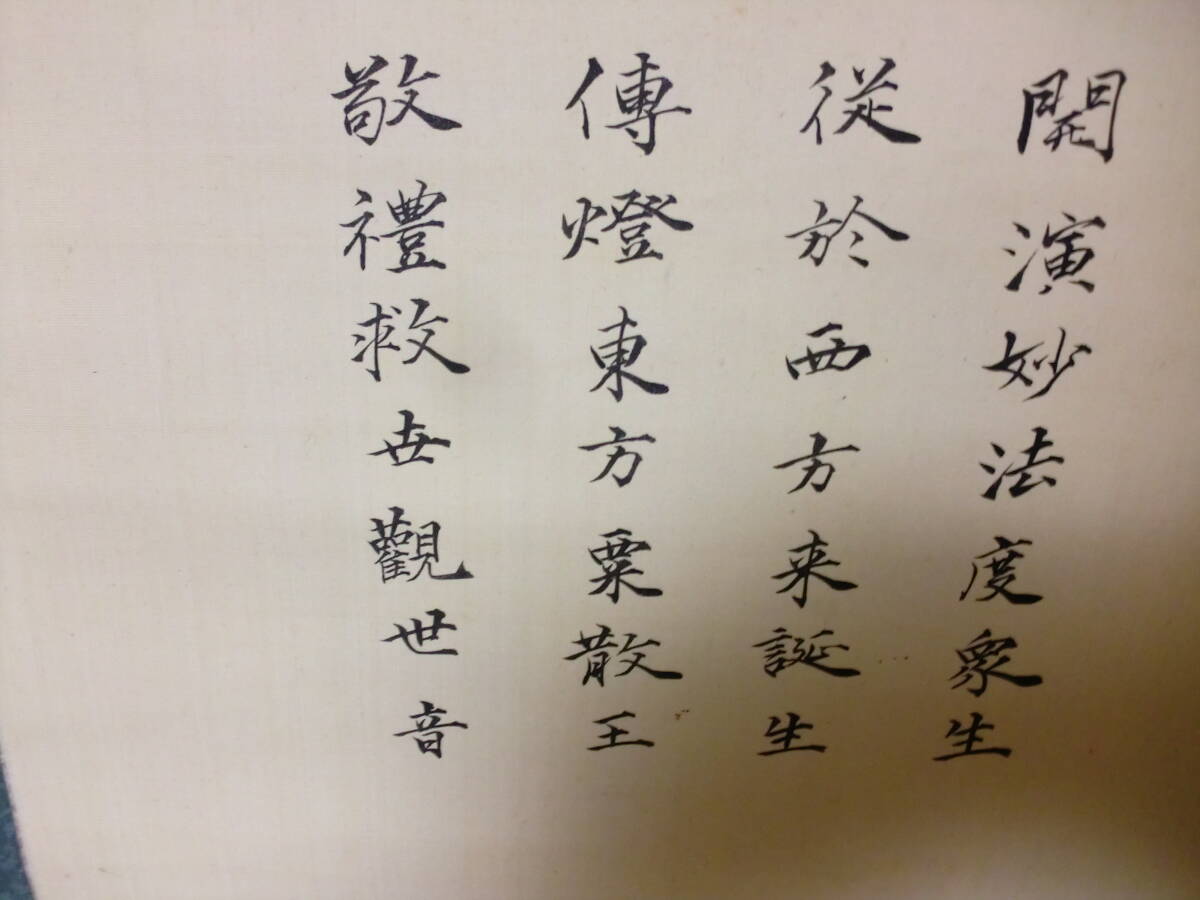 敬禮救世觀世音
傳燈東方粟散王
從於西方来誕生
開演妙法度衆生